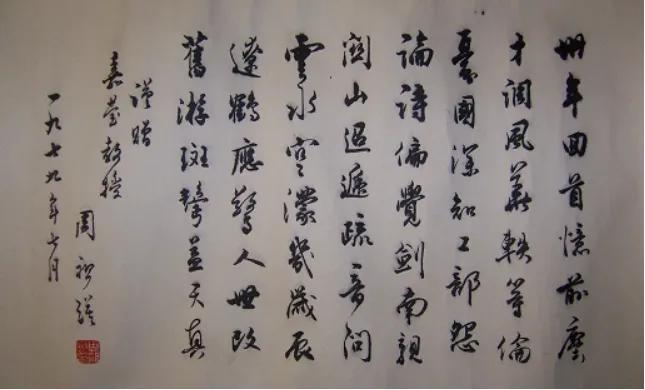 卅年回首憶前塵
才調風華軼等倫
憂國深知工部怨
論詩偏覺劍南親
關山迢遞疏音問
雲水空濛幾歲辰
遼鶴應驚人世改
舊游斑鬢益天真
謹贈
嘉瑩教授
周祖謨
一九七九年七月